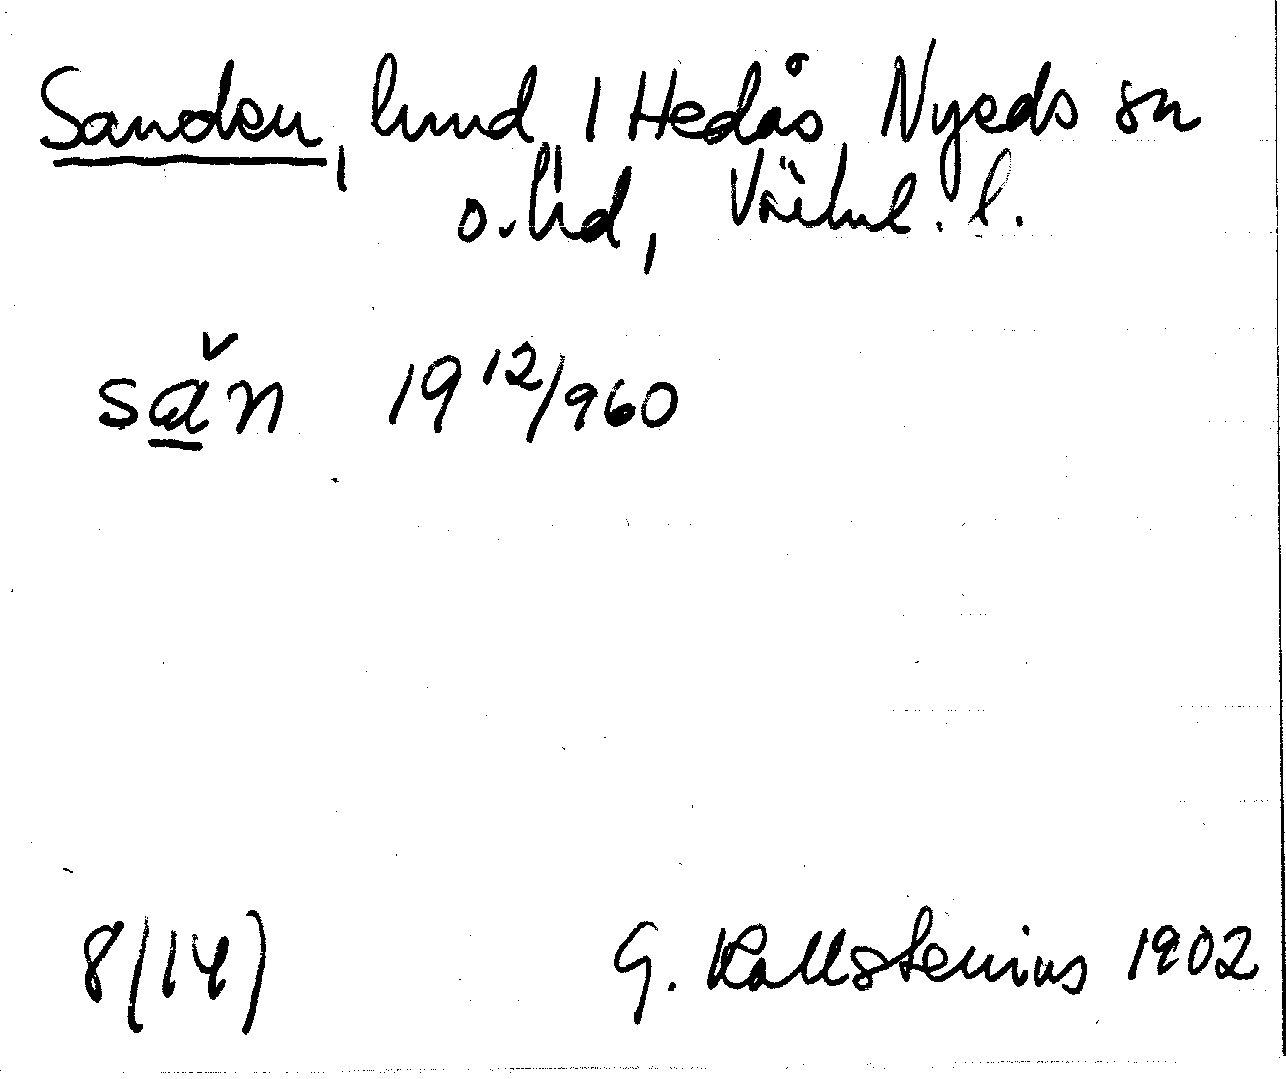 Sanden, 1 Hedås Nyeds sn
o. hd, Värml. l.
sǎ̱n 19 12/960
8/14) G. Kallstenius 1902